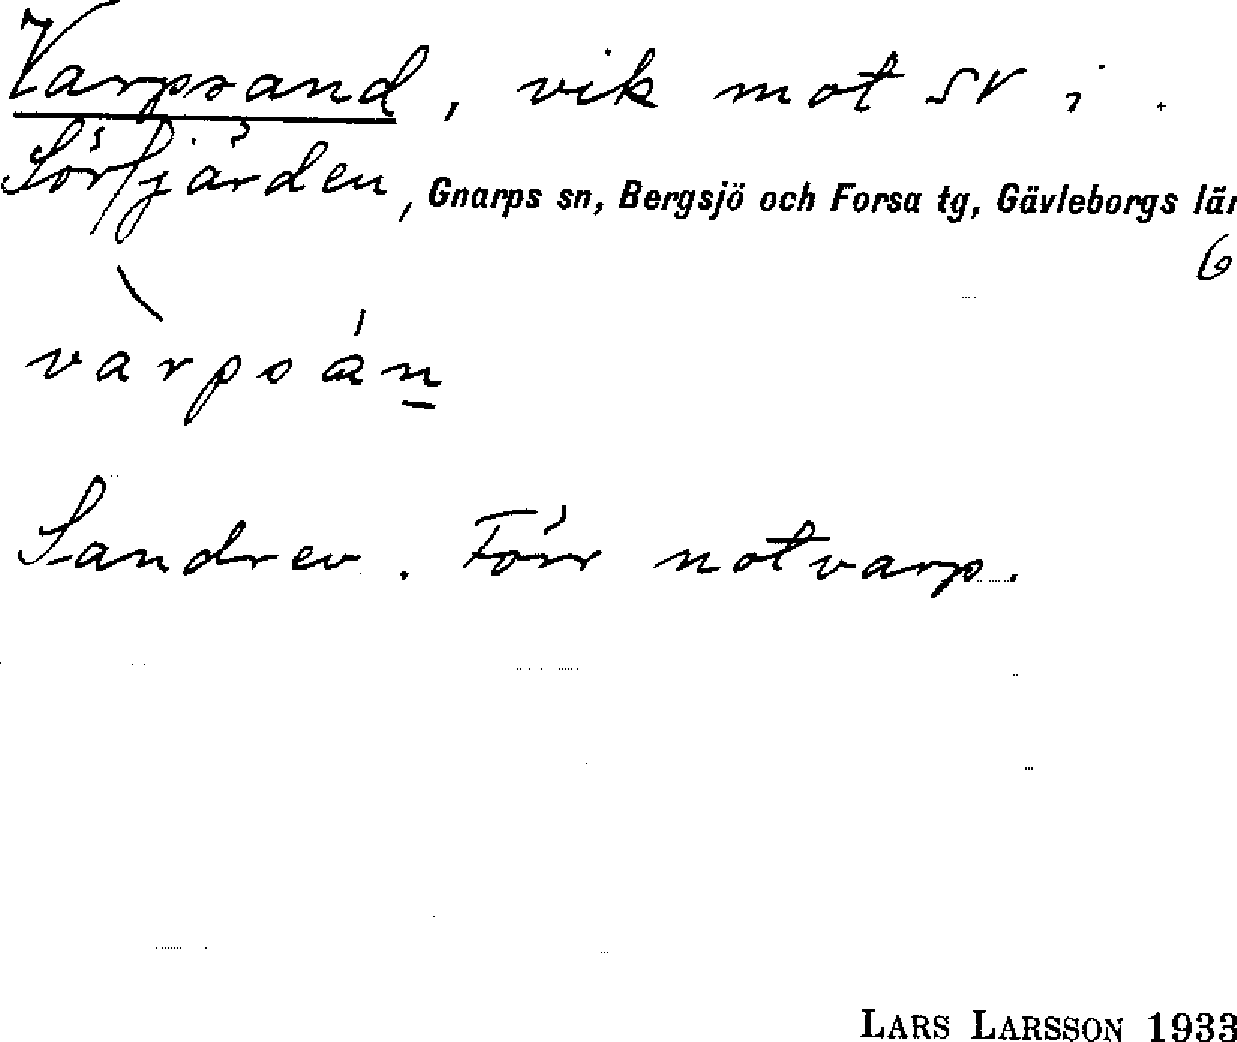 Varpsand, vik mot SV i
Sörfjärden, Gnarps sn, Bergsjö och Forsa tg, Gävleborgs län
6
vàrpsán
Sandrev. Förr notvarp.
LARS LARSSON 1933